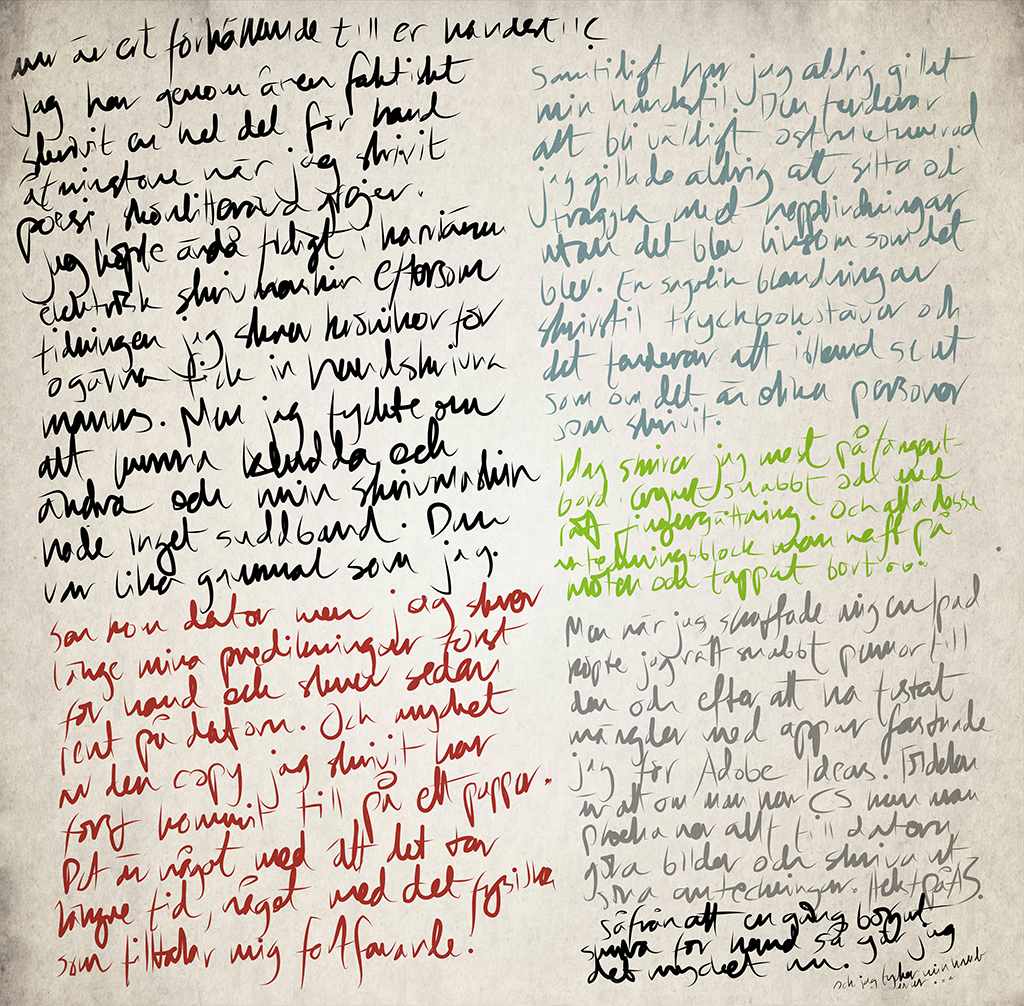 hur är ert förhållande till er handstil?
Jag har genom åren faktiskt
skrivit en hel del för hand
åtminstone när jag skrivit
poesi, skönlitterära grejer.
jag köpte ändå tidigt i karriären
elektrisk skrivmaskin eftersom
tidningen jag skrev krönikor för
ogärna fick in handskrivna
manus. Men jag tyckte om
att kunna kludda och
ändra och min skrivmaskin
hade inget suddband. Den
var lika gammal som jag.
Sen kom dator men jag skrev
länge mina predikningar först
för hand och skrev sedan
rent på datorn. Och mycket
av den copy jag skrivit har
först kommit till på ett papper.
Det är något med att det tar
längre tid, något med det fysiska
som tilltalar mig fortfarande!
Samtidigt har jag aldrig gillat
min handstil. Den tenderar
att bli väldigt ostrukturerad
jag gillade aldrig att sitta och
traggla med
utan det blev liksom som det
blev. En salig blandning av
skrivstil tryckbokstäver och
det tenderar att ibland se ut
som om det är olika personer
som skrivit.
Idag skriver jag mest på tangent-
bord. snabbt och med
rätt fingersättning. Och alla dessa
anteckningsblock man haft på
möten och tappat bort
Men när jag skaffade mig en ipad
köpte jag rätt snabbt pennor till
den och efter att ha testat
mängder med appar fastnade
jag för Adobe Ideas. Fördelen
är att om man har CS kan man
plocka ner allt till datorn
göra bilder och skriva ut
sina anteckningar. Häftigt på A3.
Så från att en gång börjat
skriva för hand så gör jag
det mycket nu.
och jag tycker min hand